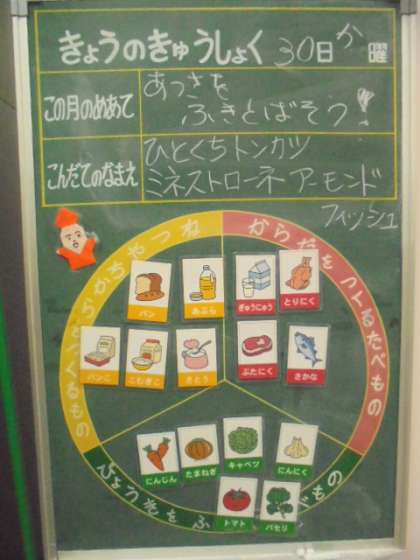 きょうのきゅうしょく 30日 か 曜
この月のめあて あつさを
ふきとばそう!
こんだてのなまえ ひとくちトンカツ
ミネストローネ アーモンド
フィッシュ
ちからやつね
からだをつくるたべもの
パン
あぶら
ぎゅうにゅう
とりにく
パンこ
こむぎこ
さとう
ぶたにく
さかな
にんじん
たまねぎ
キャベツ
にんにく
トマト
パセリ
びょう気をふ
もの